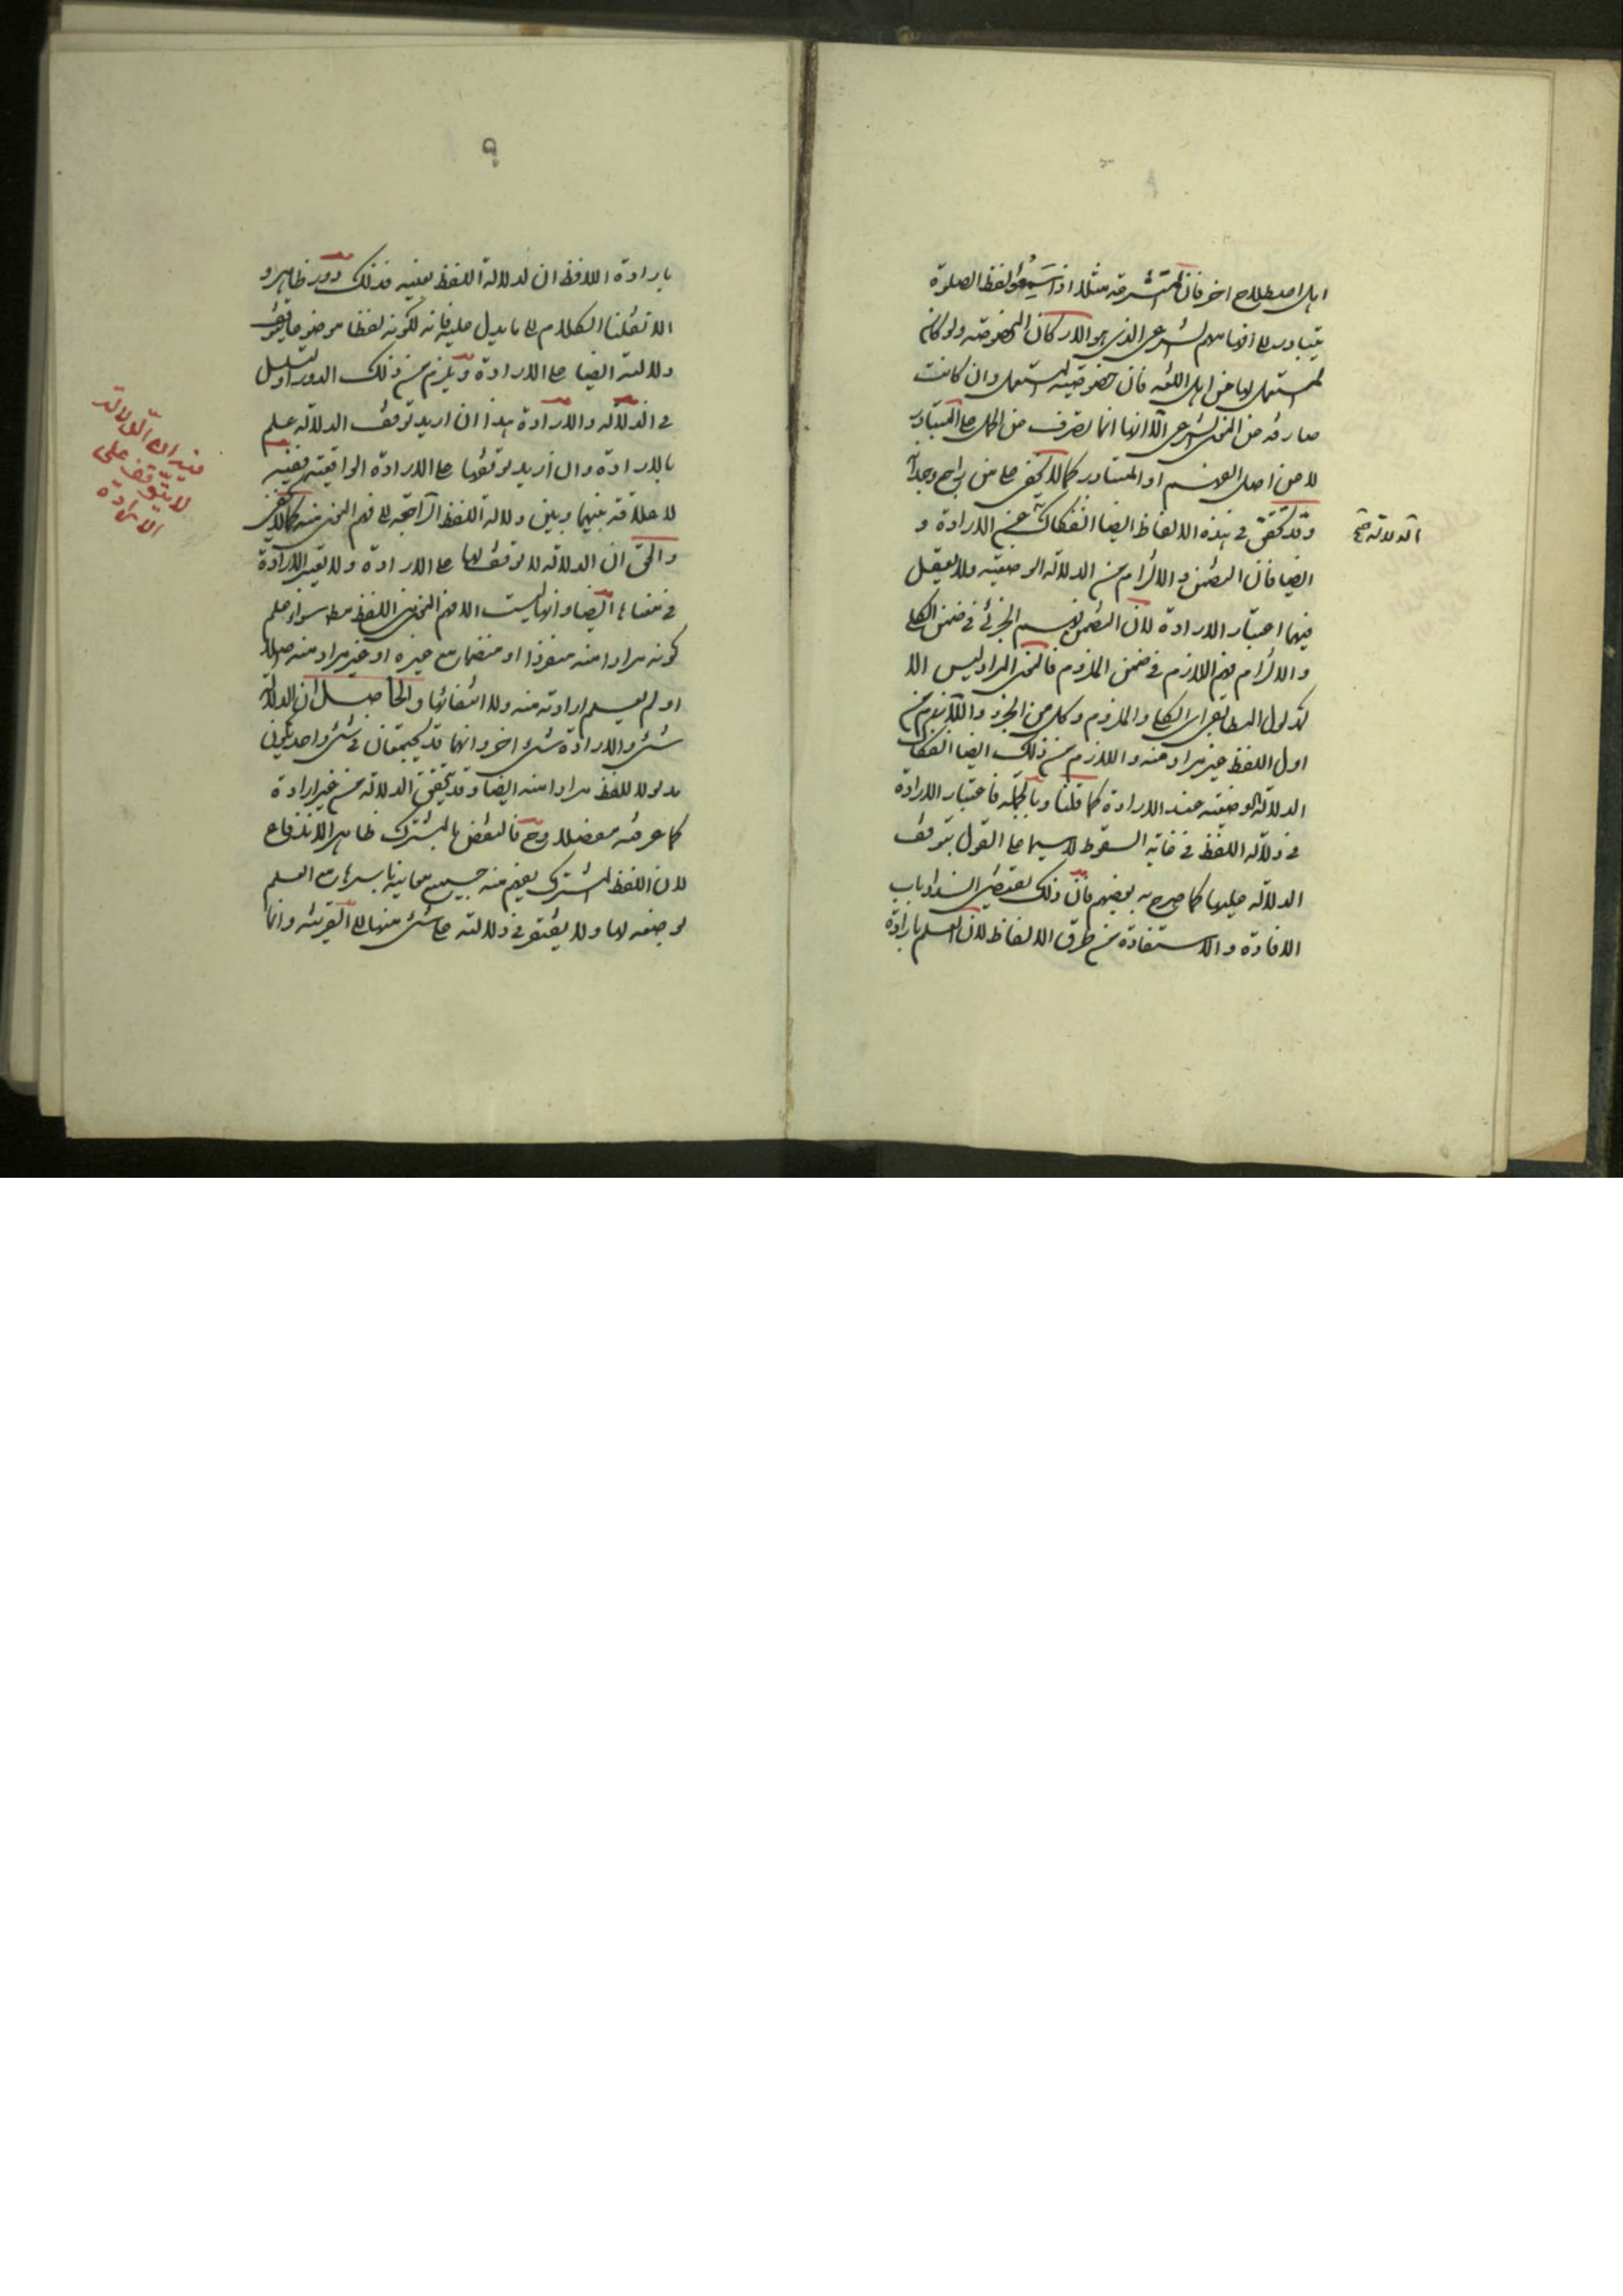 اهل اصطلاح اخر فان المتشرعة مثلا اذا سمعوا لفظ الصلوة
يتبادر الى افهامهم الشرعى الذى هو الاركان المخصوصة ولو كان
المستعمل لها من اهل اللغة فان خصوصية المستعمل وان كانت
صارفة عن المعنى الشرعى الا انها انما تصرف عن الحمل على المتبادر
لا عن اصل الفهم او المتبادر كما لا يخفى على من راجع وجدانه
وقد تحقق فى هذه الالفاظ ايضا انفكاك عن الارادة و
الدلالة
ايضا فان التضمن والالتزام من الدلالة الوضعية ولا يعقل
فيهما اعتبار الارادة لان التضمن فهم الجزئى فى ضمن الكلى
والالتزام فهم اللازم فى ضمن الملزوم فالمعنى المراد ليس الا
المدلول المطابقى اى الكل والملزوم وكل من الجزء واللازم
اول اللفظ غير مراد منه واللازم من ذلك ايضا انفكاك
الدلالة الوضعية عند الارادة كما قلنا وبالجملة فاعتبار الارادة
فى دلالة اللفظ فى غاية السقوط لا سيما على القول بتوقف
الدلالة عليها كما صرح به بعضهم فان ذلك يقتضى انسداد باب
الافادة والاستفادة من طرق الالفاظ لان العلم بارادة
٩
بارادة اللافظ ان لدلالة اللفظ بعينه فذلك دور ظاهر و
الا نقلنا الكلام الى ما يدل عليه فانه لكونه لفظا موضوعا يتوقف
دلالته ايضا على الارادة ويلزم من ذلك الدور او التسلسل
فى الدلالة والارادة هذا ان اريد توقف الدلالة على العلم
بالارادة وان اريد توقفها على الارادة الواقعية ففيه
لا علاقة بينهما وبين دلالة اللفظ الراجعة الى فهم المعنى منه كما لا يخفى
والحق ان الدلالة لا توقف لها على الارادة ولا تعتبر الارادة
فى معناها ايضا وانها ليست الا فهم المعنى من اللفظ مطلقا سواء علم
كونه مرادا منه منفردا او منضما مع غيره او غير مراد منه اصلا
او لم يعلم ارادته منه ولا انتفائها والحاصل ان الدلالة
شىء والارادة شىء اخر وانهما قد يجتمعان فى شىء واحد يكون
مدلولا للفظ مرادا منه ايضا وقد تحقق الدلالة من غير ارادة
كما عرفته مفصلا وح فالنقض بالمشترك ظاهر الاندفاع
لان اللفظ المشترك يفهم منه جميع معانيه باسرها مع العلم
بوضعه لها ولا يفتقر فى دلالته على شىء منها الى القرينة وانما
فى ان الدلالة
لا يتوقف على
الارادة